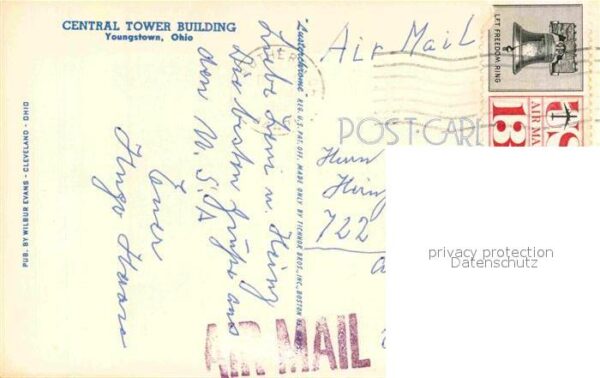 CENTRAL TOWER BUILDING
Youngstown, Ohio
PUB. BY WILBUR EVANS - CLEVELAND - OHIO
"Lusterchrome" REG. U.S. PAT. OFF. MADE ONLY BY TICHNOR BROS., INC., BOSTON
Liebe Leni u. Heinz
Die besten Grüße aus
den U.S.A
Euer
Hugo
Air Mail
POST CAR
Herrn
Heinz
722
AIR MAIL
LET FREEDOM RING
US
AIR MA
13
privacy protection
Datenschutz